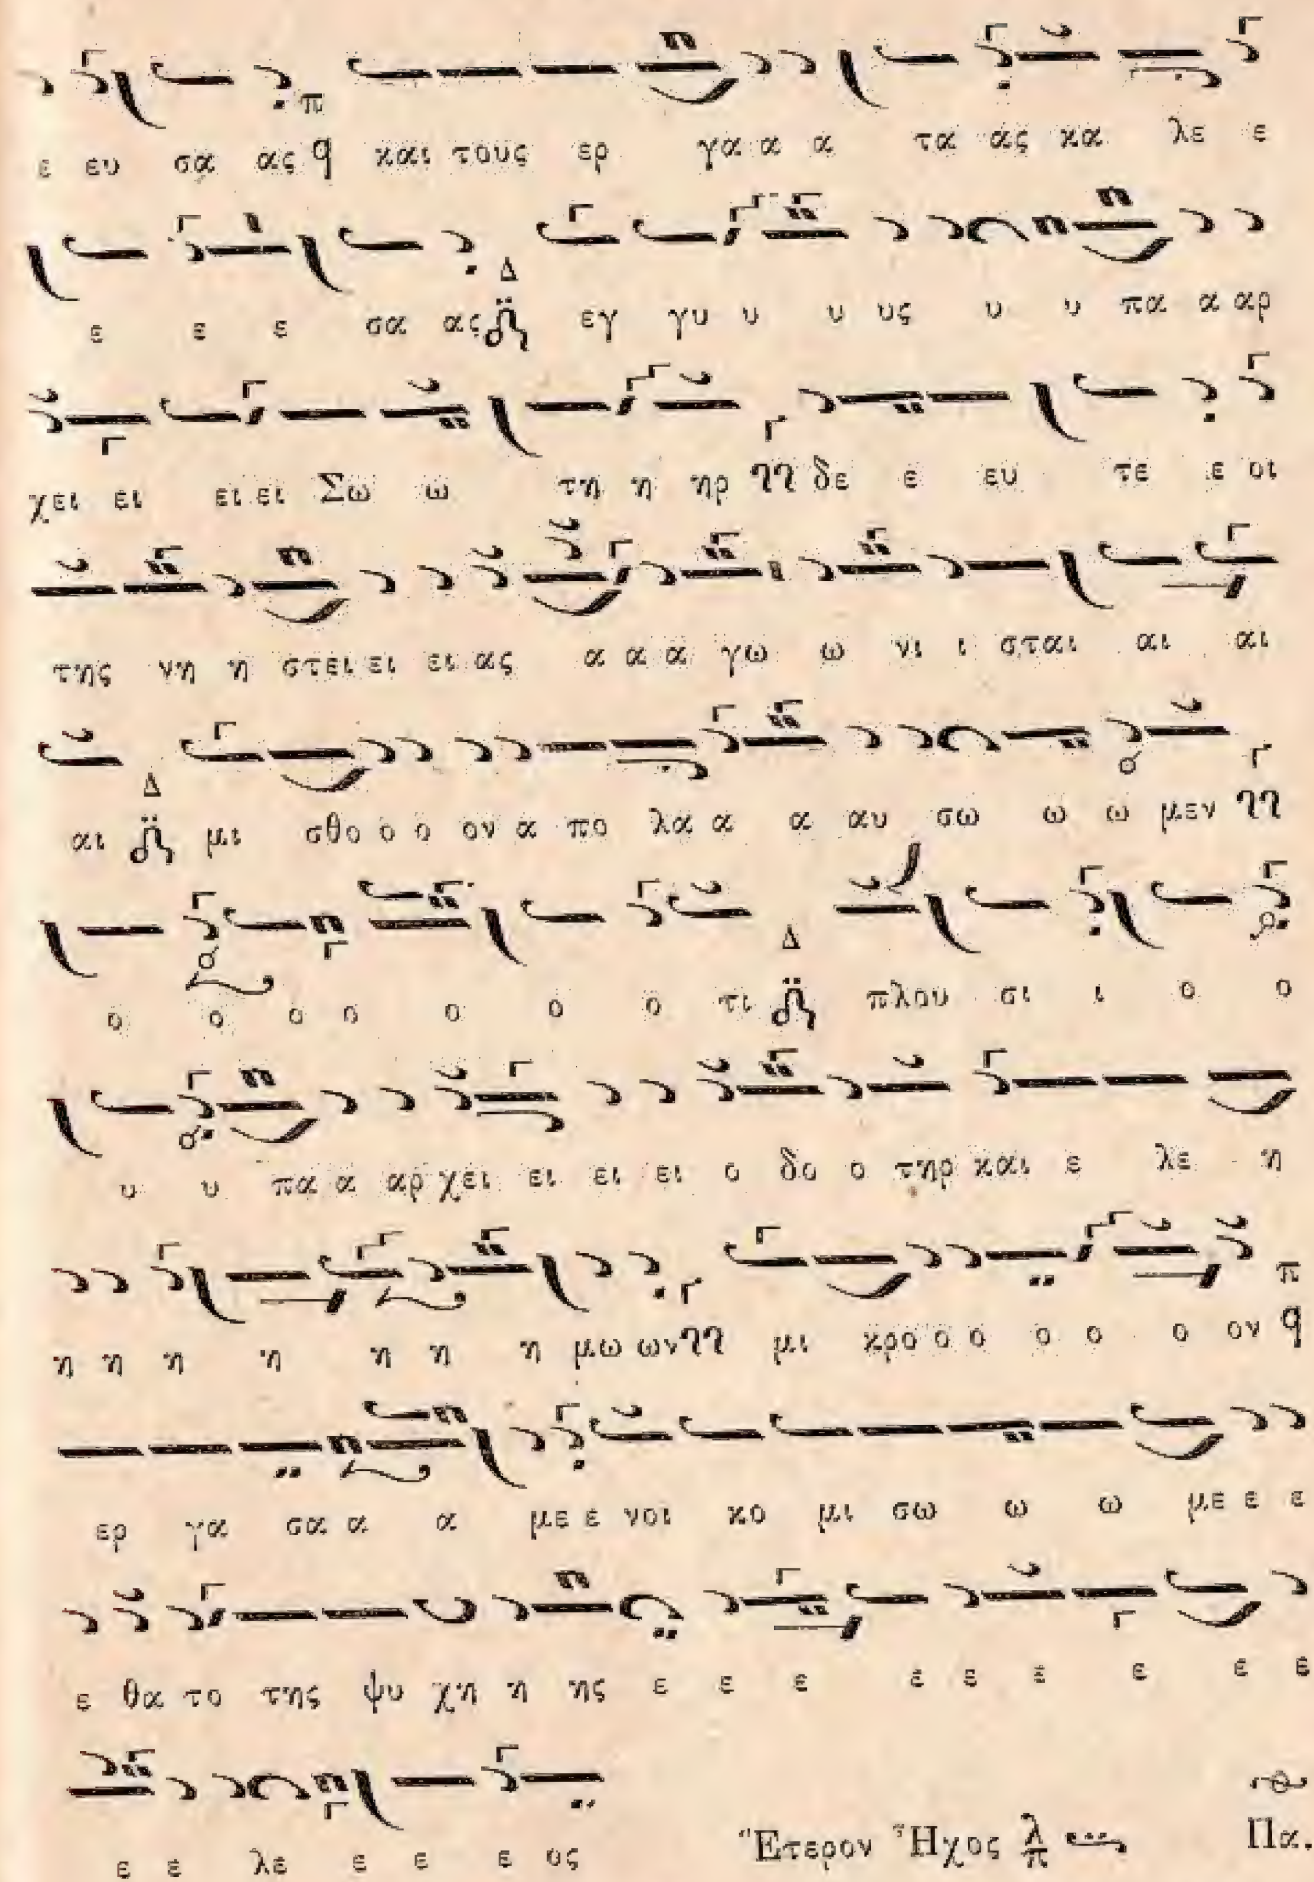 ε ευ σα ας ϥ και τους ερ γα α α τα ας κα λε ε
ε ε ε σα ας εγ γυ υ υ υς υ υ πα α αρ
χει ει ει ει Σω ω τη η ηρ δε ε ευ τε ε οι
της νη η στει ει ει ας α α α γω ω νι ι σται αι αι
αι μι σθο ο ο ον α πο λα α α αυ σω ω ω μεν
ο ο ο ο ο ο ο τι πλου σι ι ο ο
υ υ πα α αρ χει ει ει ει ο δο ο τηρ και ε λε η
η η η η η η η μω ων μι κρο ο ο ο ο ο ον ϥ
ερ γα σα α α με ε νοι κο μι σω ω ω με ε ε
ε θα το της ψυ χη η ης ε ε ε ε ε ε ε ε ε
ε ε λε ε ε ε ος
Ἕτερον Ἦχος λ π Πα.